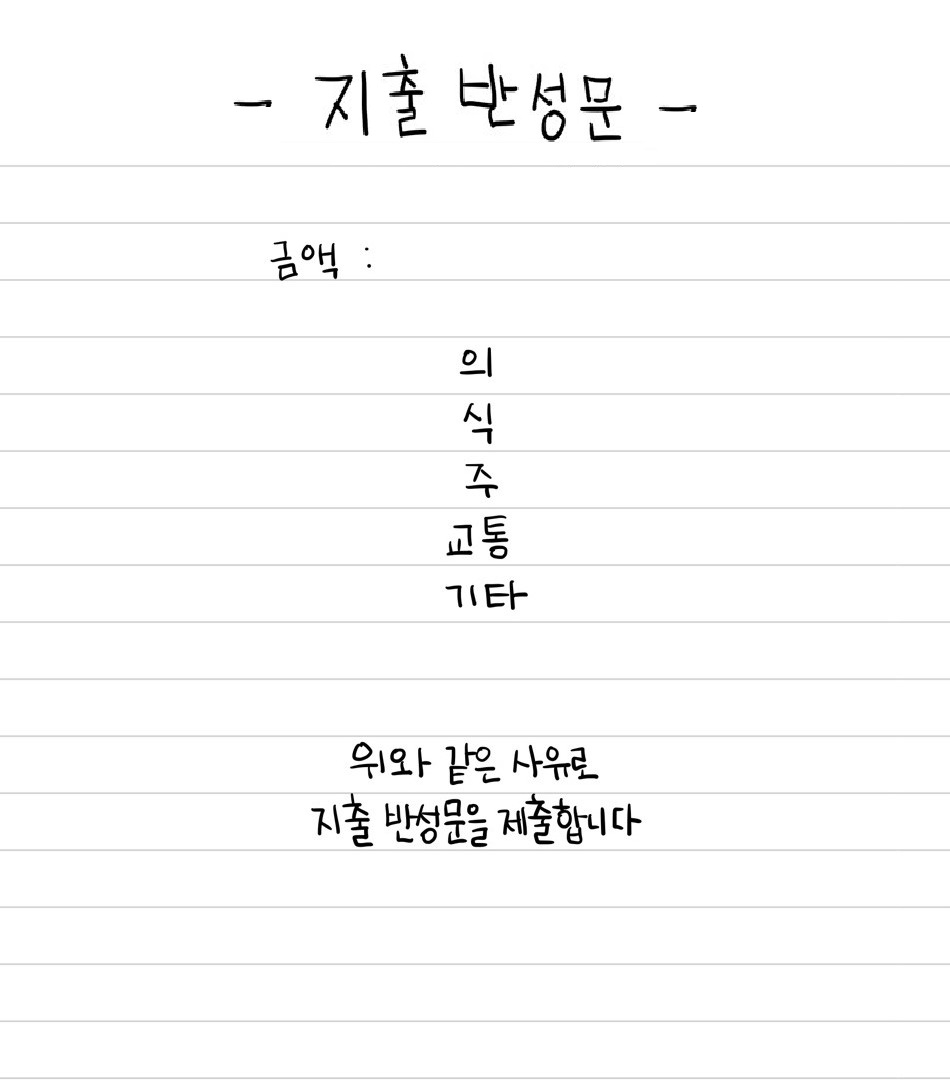 - 지출 반성문 -
금액 :
의
식
주
교통
기타
위와 같은 사유로
지출 반성문을 제출합니다